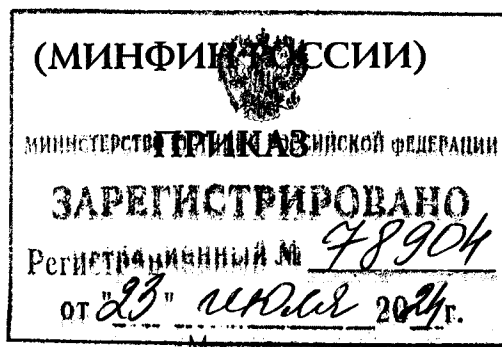 (МИНФИН РОССИИ)
МИНИСТЕРСТВО ЮСТИЦИИ РОССИЙСКОЙ ФЕДЕРАЦИИ
ПРИКАЗ
ЗАРЕГИСТРИРОВАНО
Регистрационный № 78904
от "23" июля 2024г.